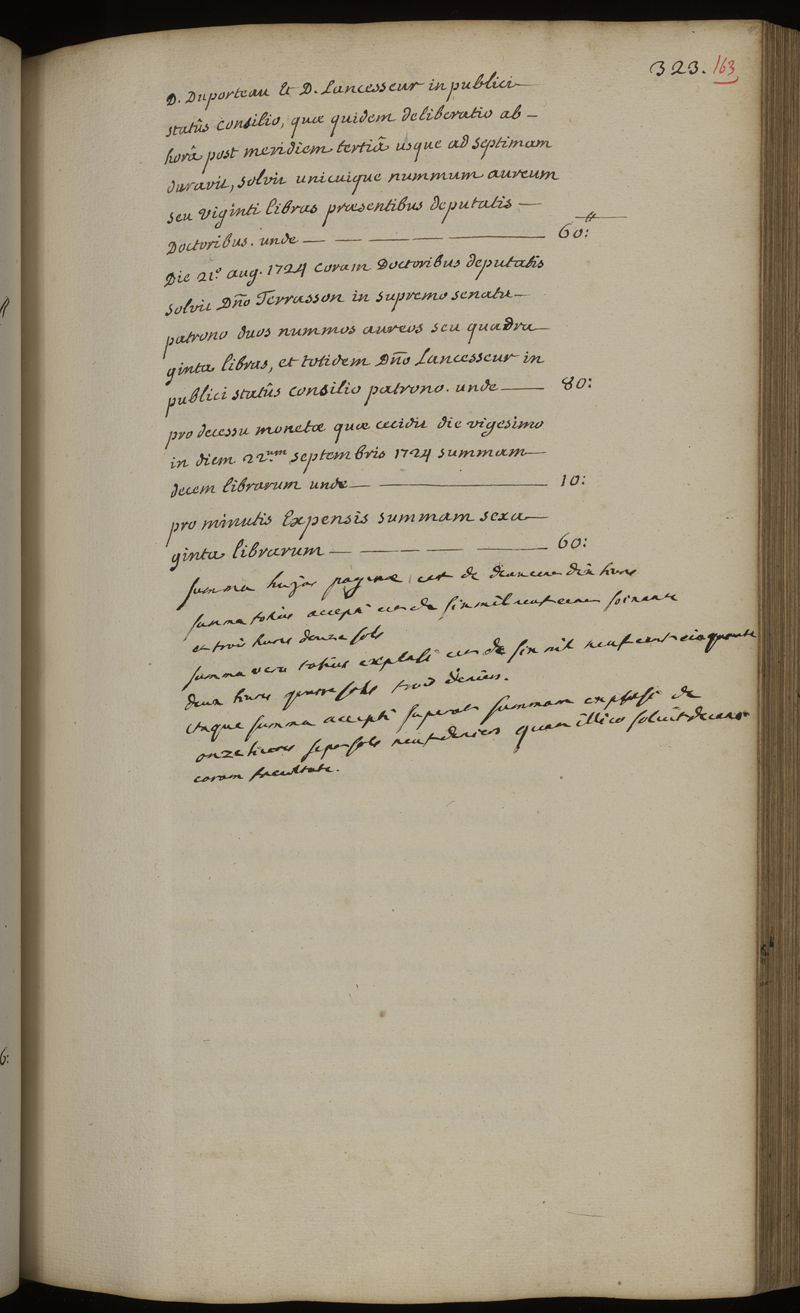 323. 163
D. Duporteau & D. Lancesseur in publici
statûs consilio, quæ quidem deliberatio ab
horâ post meridiem tertiâ usque ad septimam
duravit, solvit unicuique nummum aureum
seu viginti libras præsentibus deputatis —
Doctoribus. unde — — — — 60:
Die 21.º aug. 1724 coram Doctoribus deputatis
solvit Dño Terrasson in supremo senatu
patrono duos nummos aureos seu quadra
ginta libras, et totidem Dño Lancesseur in
publici statûs consilio patrono. unde — 80:
pro decessu monetæ quæ cecidit die vigesimo
in diem 22.um septembris 1724 summam
decem librarum unde — — 10:
pro minutis Expensis summam sexa
ginta librarum — — — — 60:
summa hujus paginæ est de deux cens dix livres
summa totius accepti est de six mil neuf cens soixante
et trois livres douze sols
summa vero totius expensi est de six mil neuf cent cinquante
deux livres quatre sols trois deniers.
itaque summa accepti superat summam expensi de
onze livres sept sols neuf deniers quam illico solvit decanus
coram facultate.
6: